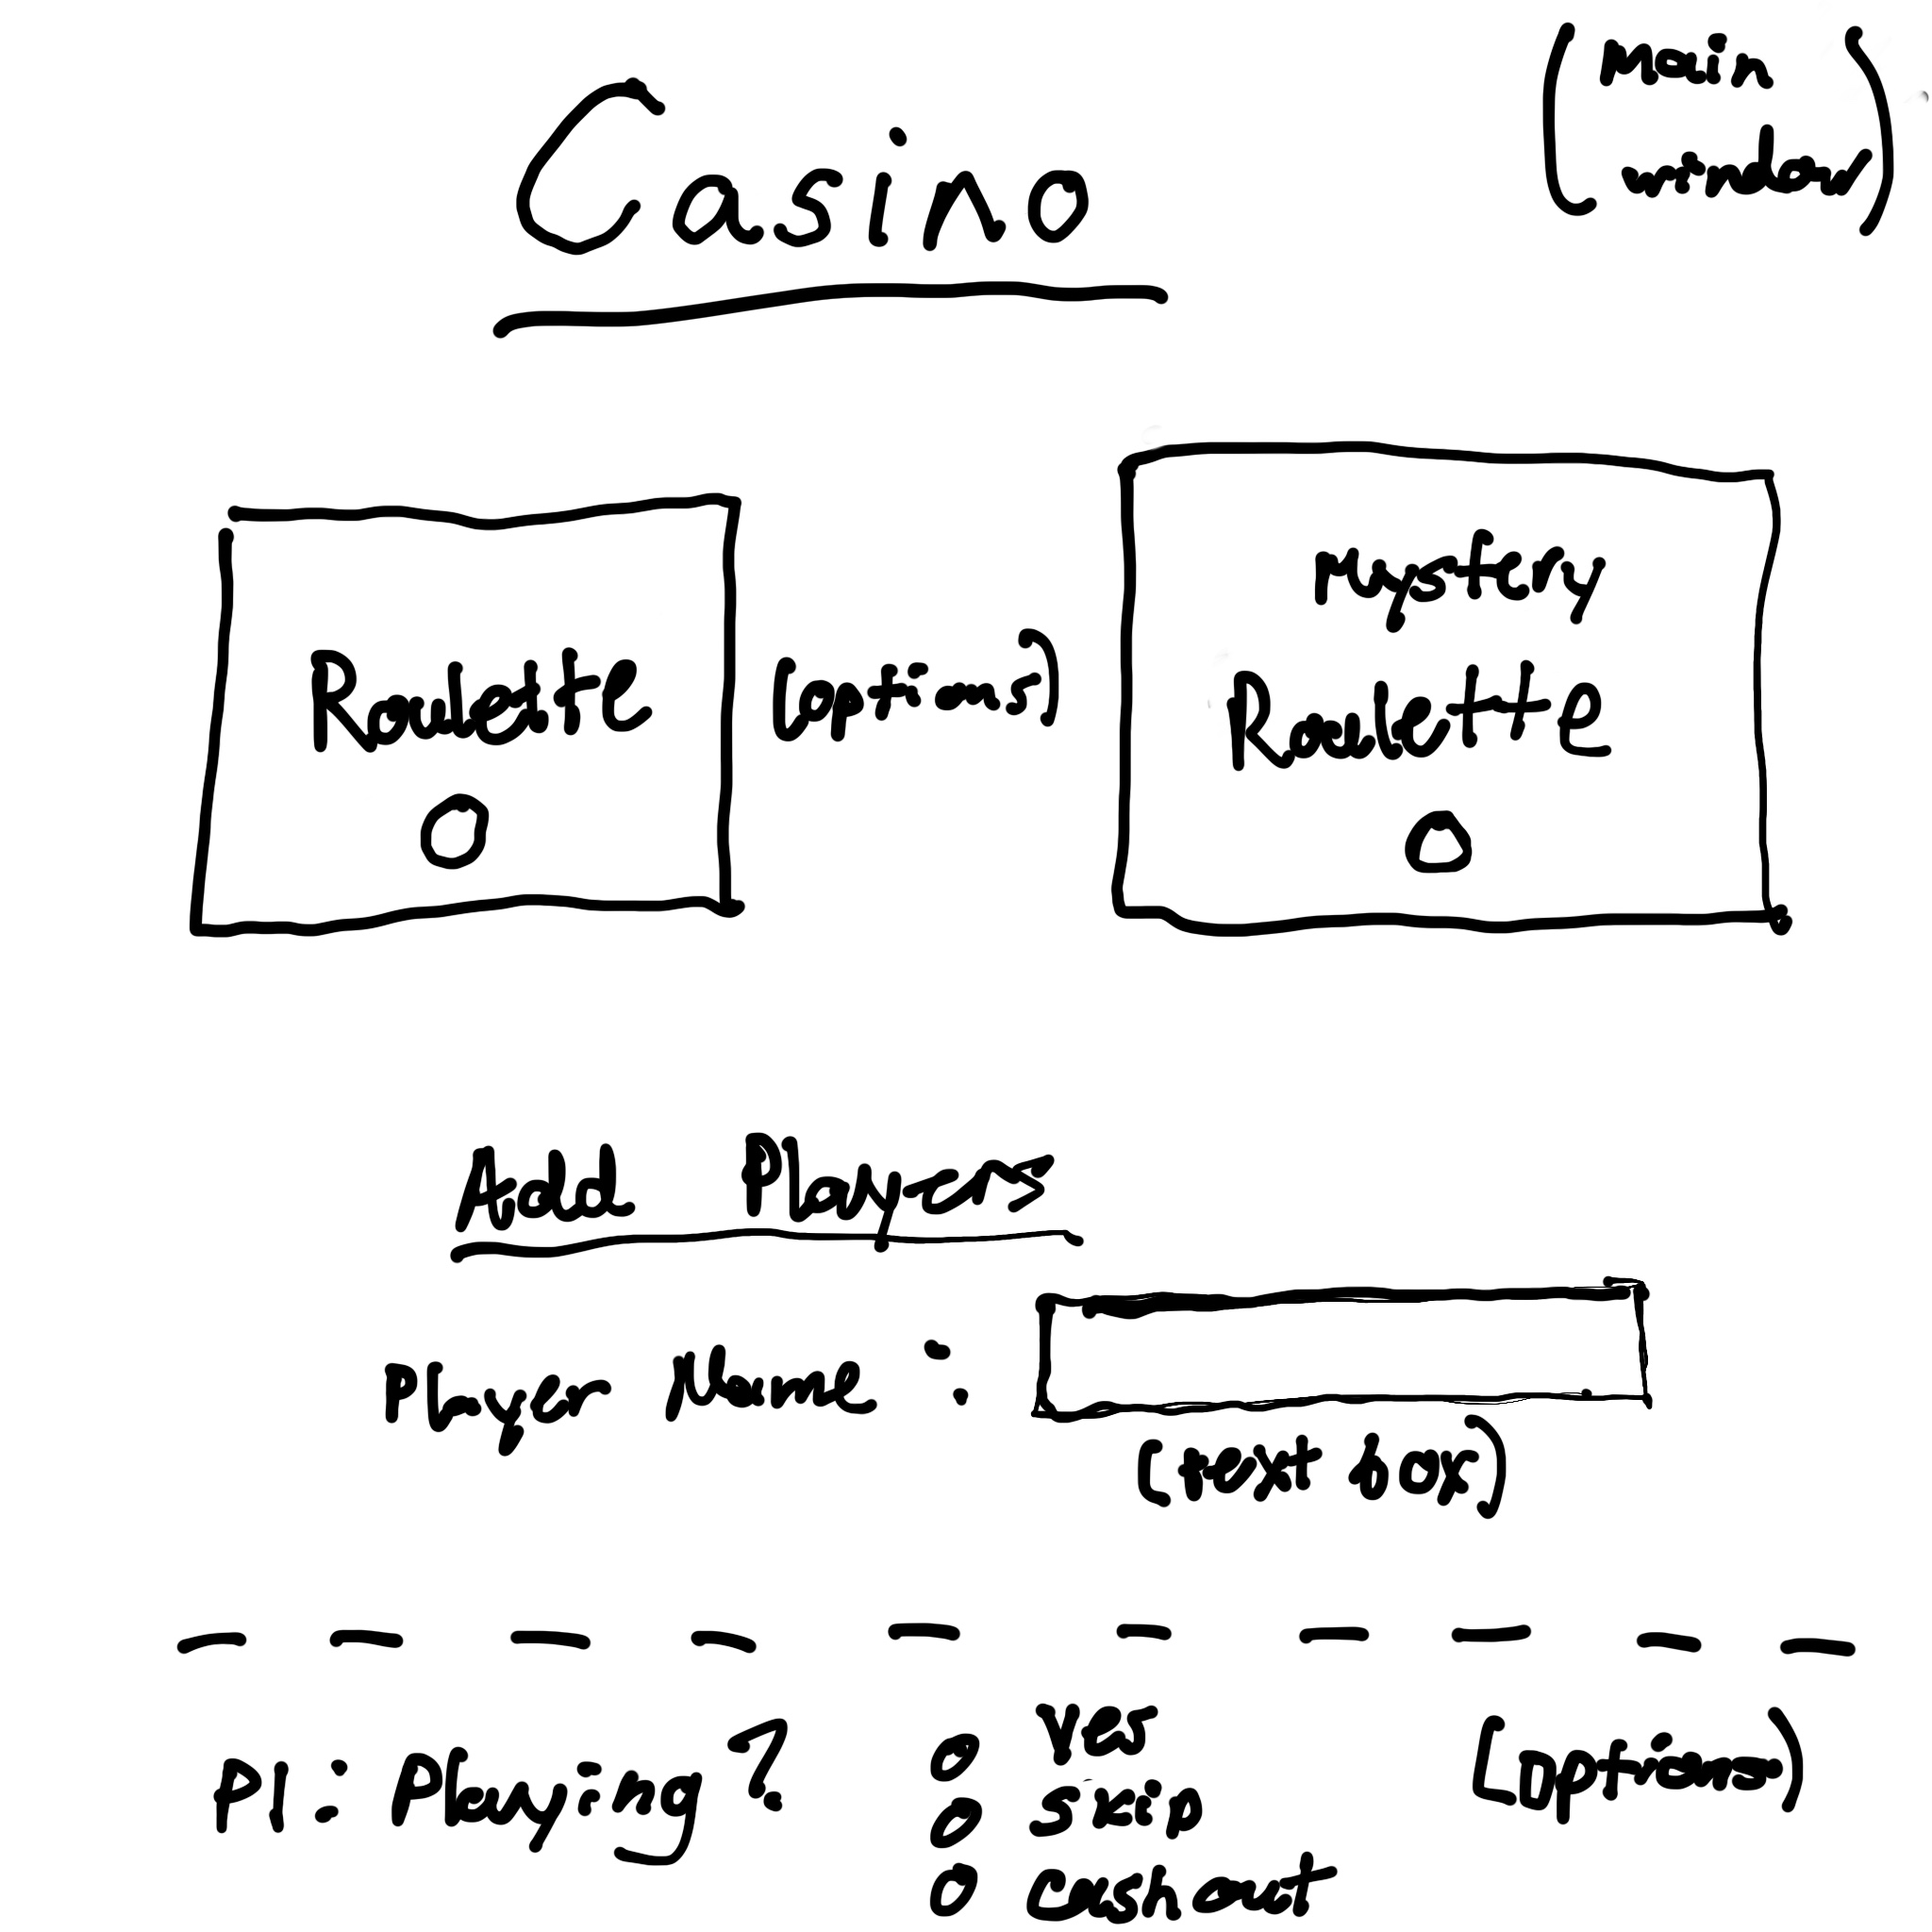 Casino
(Main
window)
Roulette
(options)
Mystery
Roulette
Add Players
Player Name :
(text box)
P1 : Playing ?
Yes
Skip
Cash out
(options)